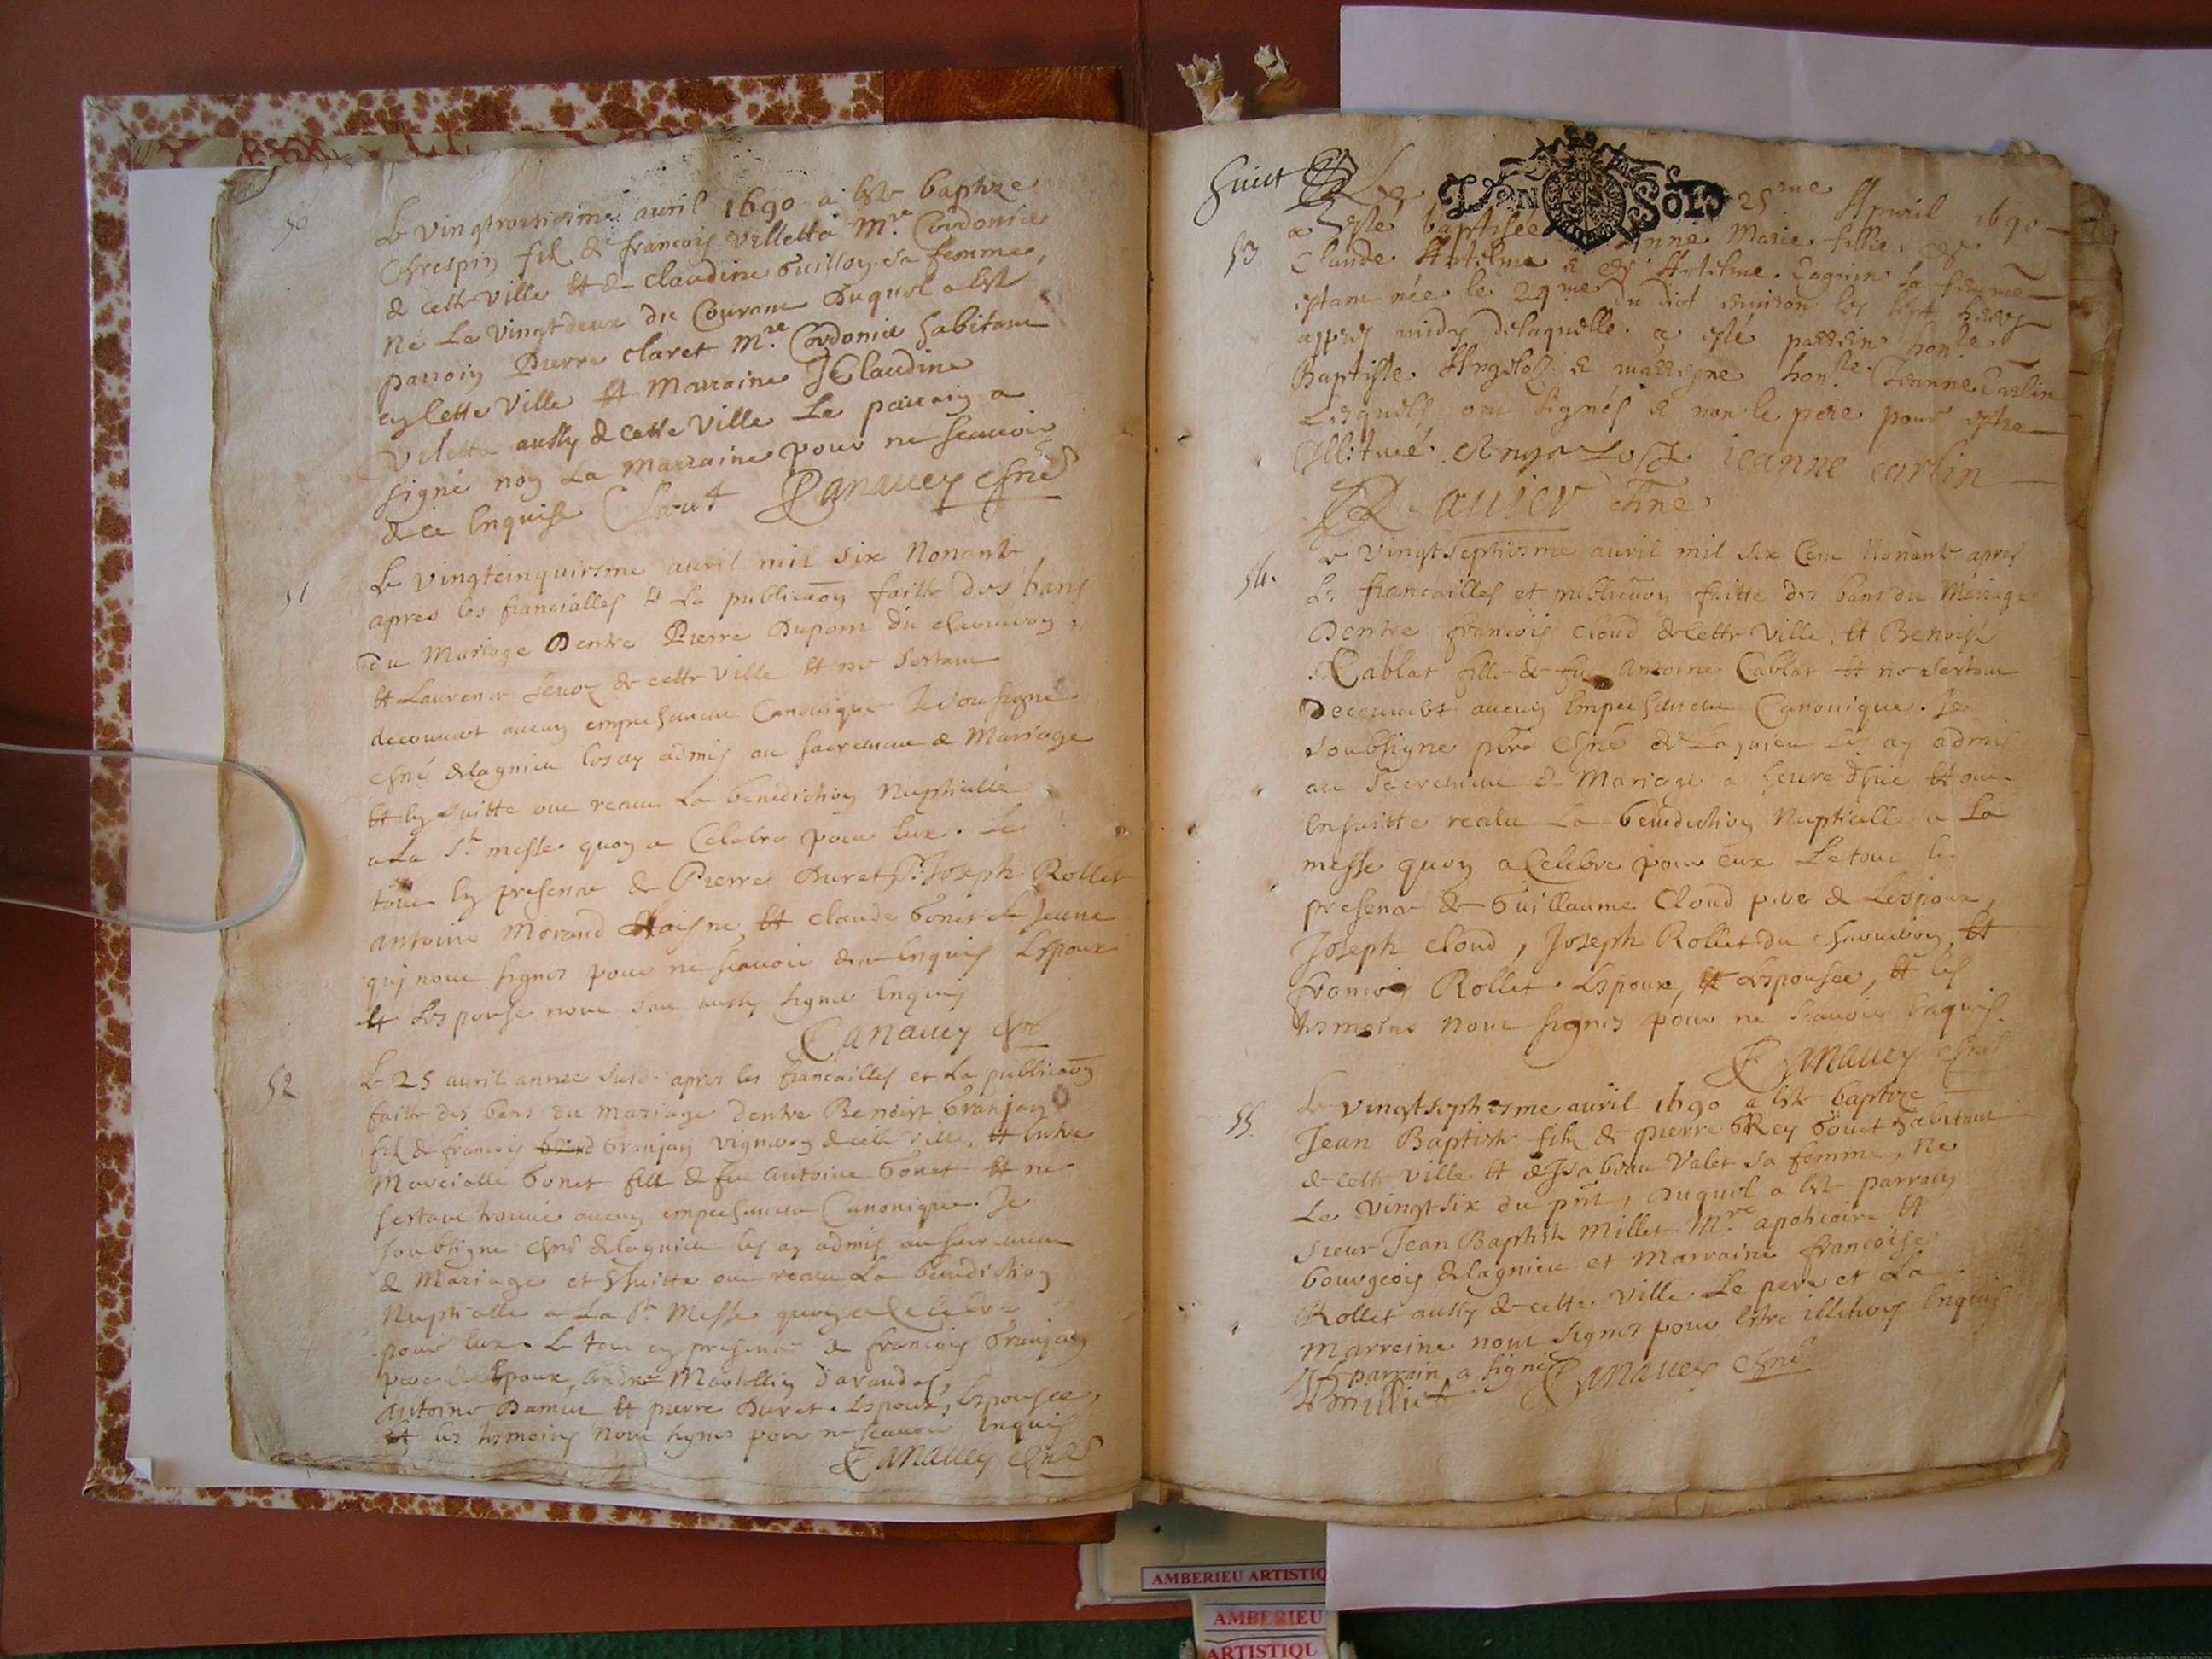 50
Le vingtroisiesme avril 1690 a este baptize
Chrespin fils de francois Villetta Mre Cordonie
de cette Ville et de claudine Guilloy sa femme,
Né Le vingtdeux du Courant Duquel a este
parroin Pierre claret Mre Cordonie habitant
en Cette Ville et Marraine Claudine
Viletta aussy de cette Ville Le parrain a
signé non La Marraine pour ne scauoir
de ce Enquise Canauey chne
51
Le Vingtcinquiesme avril mil six Nonante
apres les fiancialles et La publicaon faitte des bans
du Mariage Dentre Pierre Dupont du
et Laurence de cette Ville et ne sestant
decouuert aucun empeschement Canonique Je sousigné
chne de lagnieu les ay admis au sacrement de Mariage
et en suitte ont receu La benediction Nuptialle
a La Ste messe quon a Celebre pour Eux. Le
tout En presence de Pierre Duret Joseph Rollet
antoine Morand Laisne, et claude Gonet le Jeune
qui nont signes pour ne scauoir de ce Enquis Lespoux
et Lespouse nont aussy signé Enquis
Canauey chne
52
Le 25 auril annee susd apres les fiancailles et La publicaon
faitte des bans du Mariage dentre Benoist Granjan
fils de francois Granjan vigneron de cette Ville, et Entre
Marcialle Gonet fille de feu Antoine Gonet et ne
sestant trouue aucun empeschement Canonique. Je
soubsigne chne de lagnieu les ay admis au sacrement
de Mariage et Ensuitte ont receu La benediction
Nuptialle a La Ste Messe quon a Celebre
pour Eux. Le tout en presence de francois Granjan
pere de Lespoux, Martellin d'arandas,
Antoine Damen et pierre Duret. Lespoux, Lespousee,
et les tesmoins Nont signes pour ne scauoir Enquis
Canauey chne
huict
Le DEN SOLS 25me Apuril 1690
53
a esté baptisée Anne Marie fillie de
Claude Antelme & de Antelme sa femme
estant née le 24me du dict enuiron les sept heures
appres midy de laquelle a esté parrin honle
Baptiste Angeloz & marregne honste Jeanne Carlin
Lesquels ont signés & non le pere pour estre
Illitteré. Angeloz ieanne carlin
auier chne
54.
Le vingtseptiesme auril mil six Cent Nonante apres
Les fiancailles et publicaon faitte des bans du Mariage
Dentre francois Cloud de Cette Ville, et Benoiste
Cablat fille de feu Antoine Cablat et ne sestant
decouuert aucun Empeschement Canonique. Je
soubsigne pbre chne de Lagnieu Les ay admis
au Sacrement de Mariage a heure due et ont
Ensuitte receu La benediction Nuptialle a La
messe quon a Celebre pour eux Le tout En
presence de Guillaume Cloud pere de Lespoux,
Joseph Cloud, Joseph Rollet du et
francois Rollet Lespoux, et Lespousee, et les
tesmoins Nont signes pour ne scauoir Enquis.
Canauey chne
55.
Le vingtseptiesme auril 1690 a este baptize
Jean Baptiste fils de pierre Rey Gouet habitant
de cette ville et de Isabeau Valet sa femme, Ne
Le Vingtsix du pnt, Duquel a este parrain
sieur Jean Baptiste Millet Mre apoticaire et
bourgeois de lagnieu et Marraine francoise
Rollet aussy de cette Ville. Le pere et La
Marreine nont signes pour Estre illiteres Enquis
Le parrain a signé Canauey chne
Milliet
AMBERIEU ARTISTIQ
AMBERIEU
ARTISTIQU